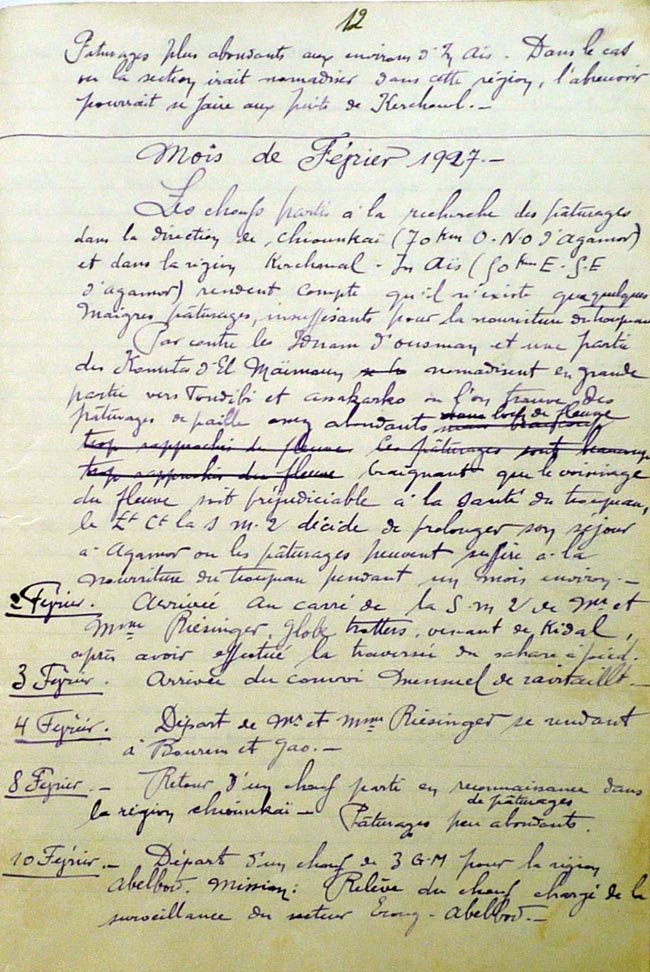 12
Pâturages plus abondants aux environs d'In Aïs. Dans le cas
où la section irait nomadiser dans cette région, l'abreuvoir
pourrait se faire aux puits de Kerchoul.-
Mois de Février 1927.-
Les choufs partis à la recherche des pâturages
dans la direction de Chiounkaï (70 km O-NO d'Agamor)
et dans la région Kerchoual - In Aïs (50 km E-S-E
d'Agamor) rendent compte qu'il n'existe que quelques
maigres pâturages, insuffisants pour la nourriture du troupeau
Par contre les Idnam d'ousman et une partie
des Kounta d'El Maïmoun nomadisent en grande
partie vers Tondibi et assakarko où l'on trouve des
pâturages de paille assez abondants dans loup de fleuve
mais beaucoup
trop rapprochés du fleuve les pâturages sont beaucoup
trop rapprochés du fleuve craignant que le voisinage
du fleuve soit préjudiciable à la santé du troupeau,
le Lt Ct la S M. 2 décide de prolonger son séjour
à Agamor où les pâturages peuvent suffire à la
nourriture du troupeau pendant un mois environ.-
2 Février. Arrivée au carré de la S.M 2 de Mr et
Mme Riésinger, Globe trotters, venant de Kidal,
après avoir effectué la traversée du sahara à pied.
3 Février. Arrivée du convoi mensuel de ravitaillt.-
4 Février. Départ de Mr et Mme Riesinger se rendant
à Bourem et Gao.-
8 Février.- Retour d'un chouf parti en reconnaissance dans
de pâturages
la région chiounkaï - Pâturages peu abondants.
10 Février.- Départ d'un chouf de 3 G.M pour la région
Abelbod. Mission: Relève du chouf chargé de la
surveillance du secteur Abelbod.-